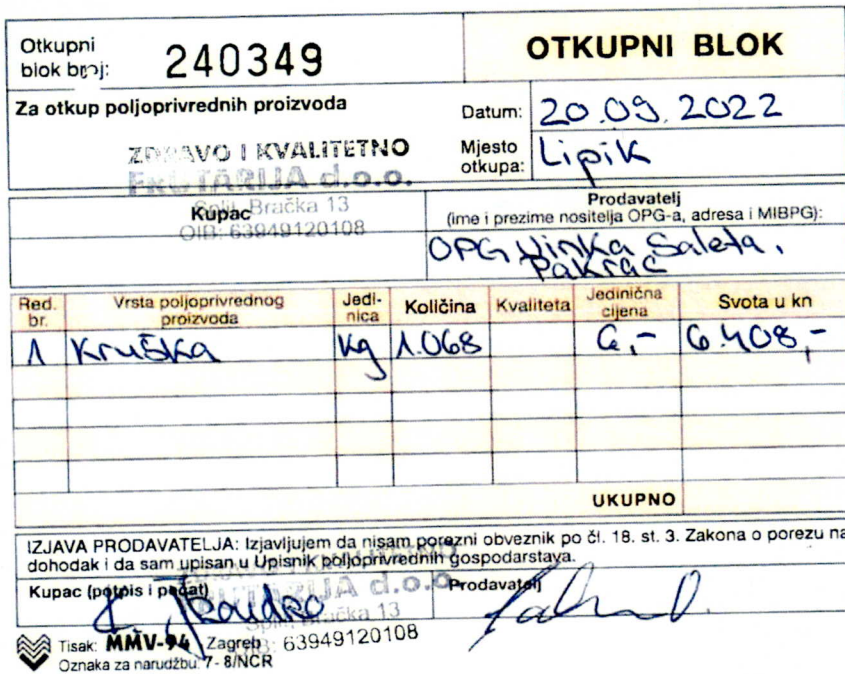 Otkupni blok broj: 240349
OTKUPNI BLOK
Za otkup poljoprivrednih proizvoda
Datum: 20.09.2022
Mjesto otkupa: Lipik
ZDRAVO I KVALITETNO
FRUTARIJA d.o.o.
Split, Bračka 13
OIB: 63949120108
Kupac
Prodavatelj
(ime i prezime nositelja OPG-a, adresa i MIBPG):
OPG Vinka Saleta,
Pakrac
Red. br. Vrsta poljoprivrednog proizvoda Jedi-nica Količina Kvaliteta Jedinična cijena Svota u kn
1 Kruška kg 1.068 6,- 6.408,-
UKUPNO
IZJAVA PRODAVATELJA: Izjavljujem da nisam porezni obveznik po čl. 18. st. 3. Zakona o porezu na
dohodak i da sam upisan u Upisnik poljoprivrednih gospodarstava.
Kupac (potpis i pečat)
Prodavatelj
FRUTARIJA d.o.o.
Split, Bračka 13
OIB: 63949120108
Tisak: MMV-94 Zagreb
Oznaka za narudžbu: 7- 8/NCR